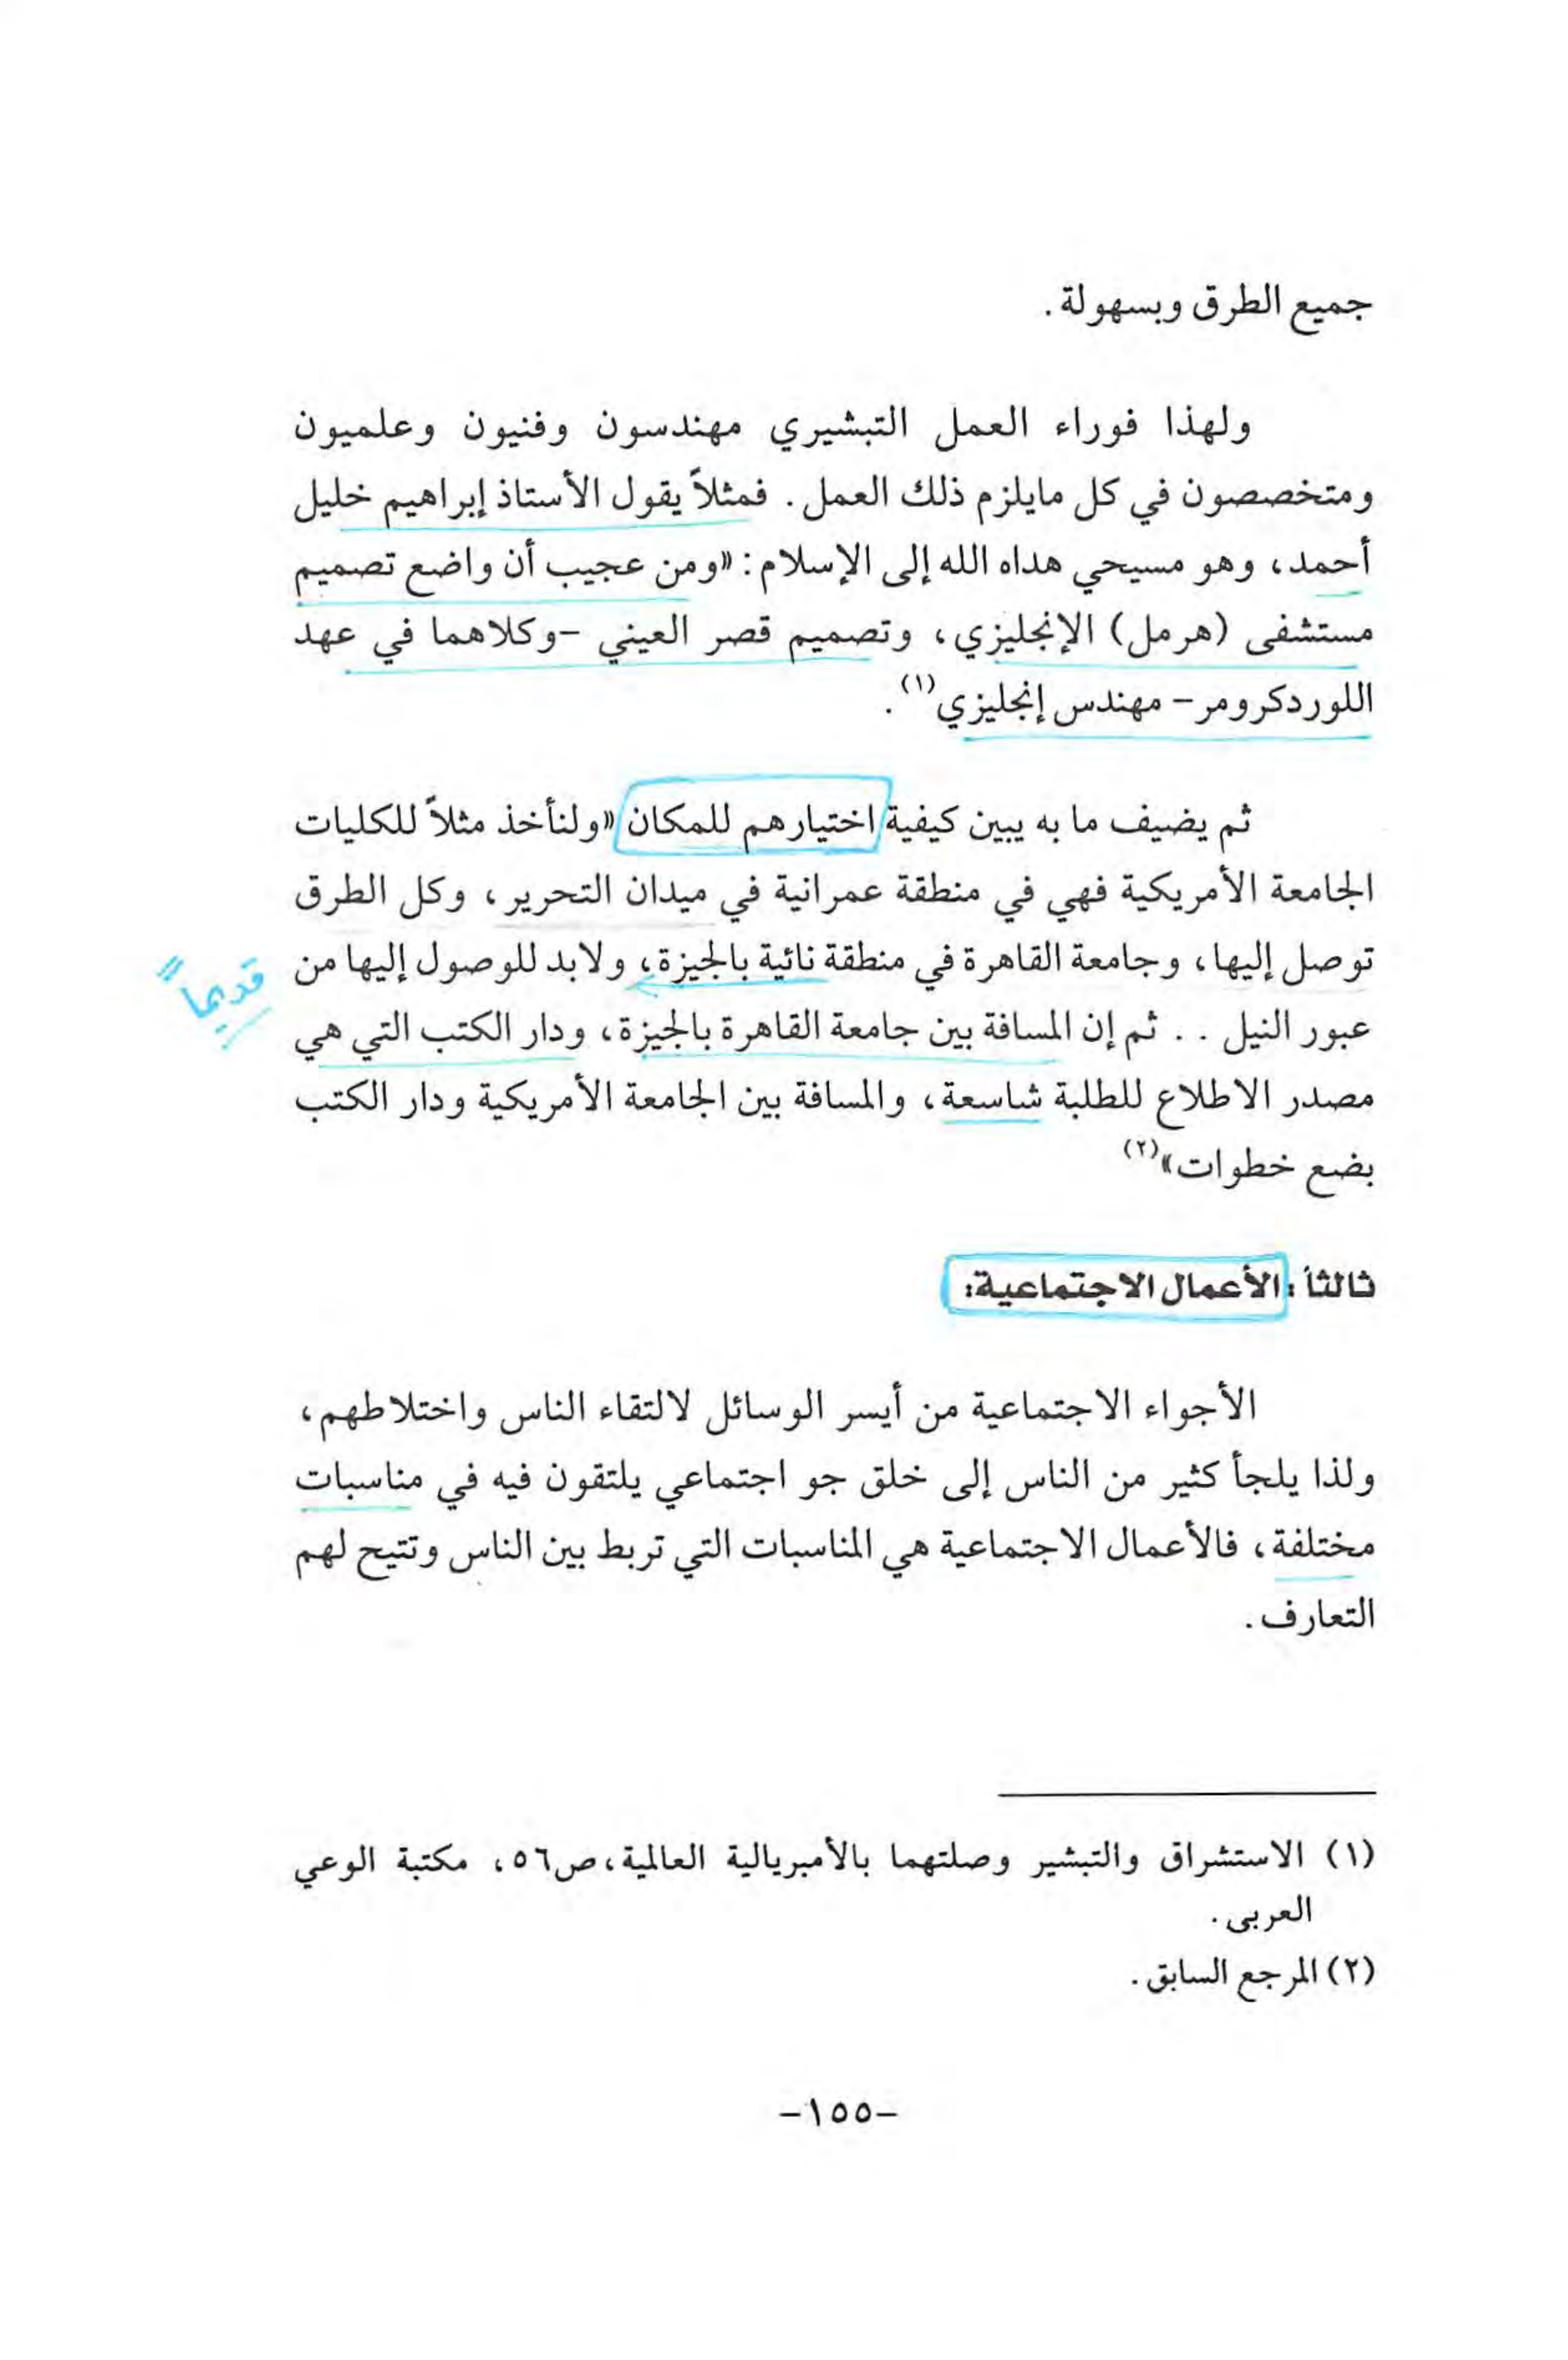 جميع الطرق وبسهولة.
ولهذا فوراء العمل التبشيري مهندسون وفنيون وعلميون
ومتخصصون في كل مايلزم ذلك العمل. فمثلاً يقول الأستاذ إبراهيم خليل
أحمد، وهو مسيحي هداه الله إلى الإسلام: «ومن عجيب أن واضع تصميم
مستشفى (هرمل) الإنجليزي، وتصميم قصر العيني -وكلاهما في عهد
اللوردكرومر- مهندس إنجليزي(١).
ثم يضيف ما به يبين كيفية اختيارهم للمكان «ولنأخذ مثلاً للكليات
الجامعة الأمريكية فهي في منطقة عمرانية في ميدان التحرير، وكل الطرق
توصل إليها، وجامعة القاهرة في منطقة نائية بالجيزة، ولابد للوصول إليها من
قديماً
عبور النيل .. ثم إن المسافة بين جامعة القاهرة بالجيزة، ودار الكتب التي هي
مصدر الاطلاع للطلبة شاسعة، والمسافة بين الجامعة الأمريكية ودار الكتب
بضع خطوات»(٢)
ثالثاً: الأعمال الاجتماعية:
الأجواء الاجتماعية من أيسر الوسائل لالتقاء الناس واختلاطهم،
ولذا يلجأ كثير من الناس إلى خلق جو اجتماعي يلتقون فيه في مناسبات
مختلفة، فالأعمال الاجتماعية هي المناسبات التي تربط بين الناس وتتيح لهم
التعارف.
(١) الاستشراق والتبشير وصلتهما بالأمبريالية العالمية،ص٥٦، مكتبة الوعي
العربى.
(٢) المرجع السابق.
-١٥٥-